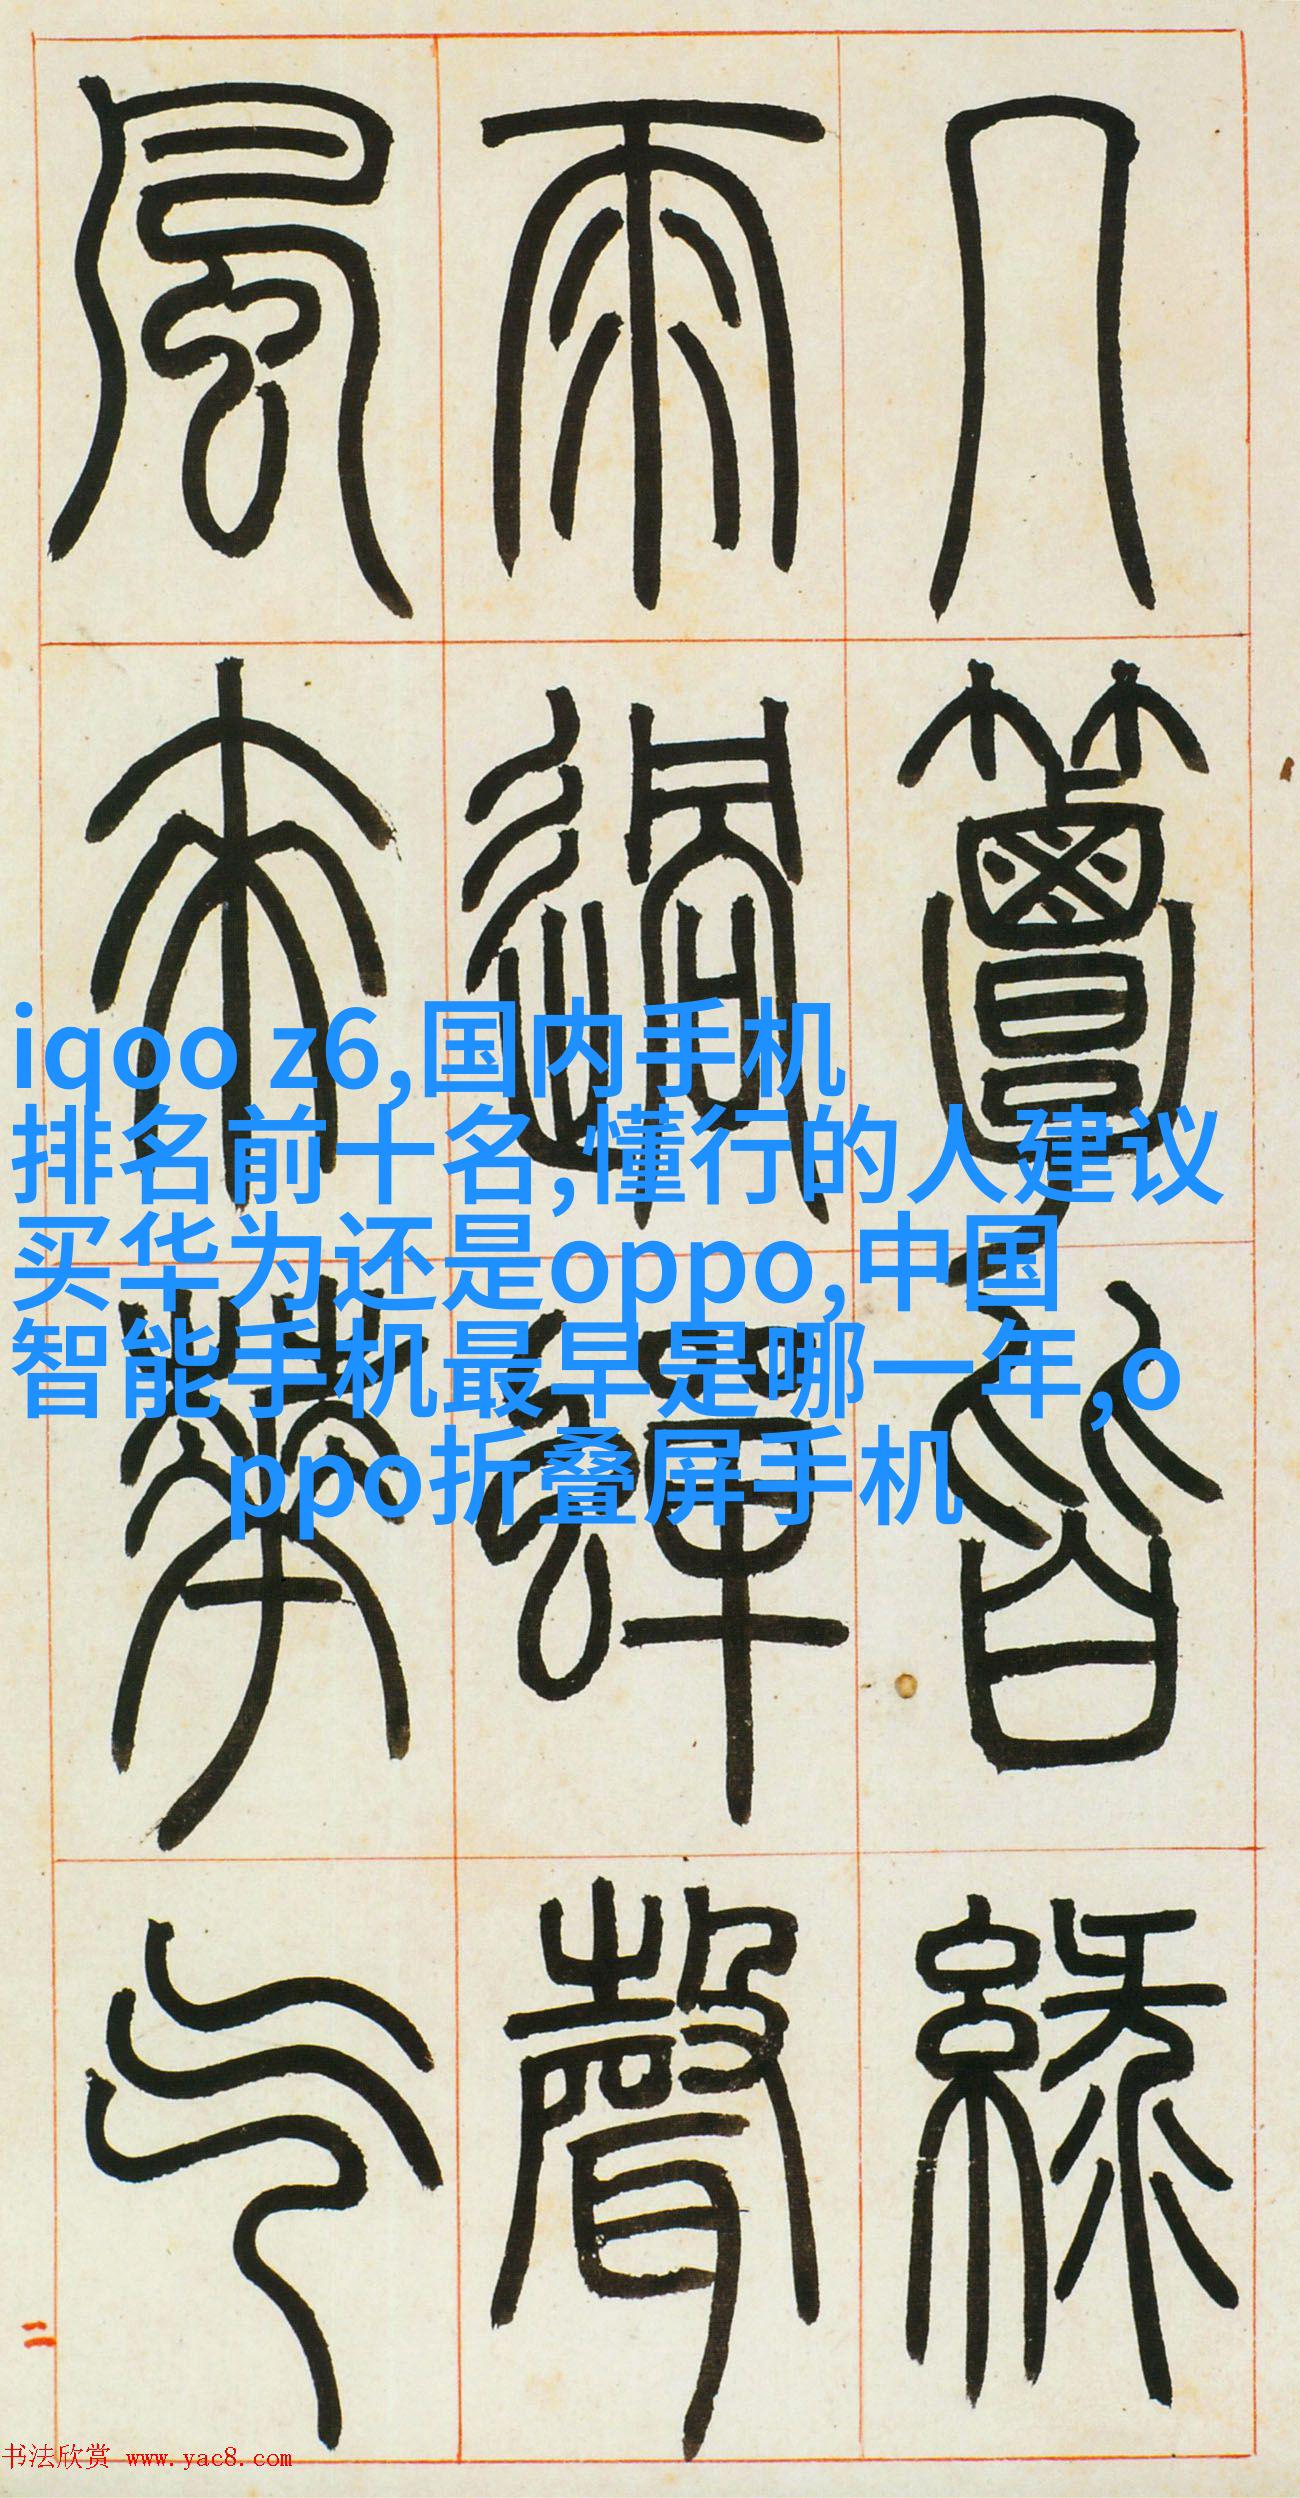 几簟皆綠
雨過蟬聲
風來華气
iqoo z6,国内手机
排名前十名,懂行的人建议
买华为还是oppo,中国
智能手机最早是哪一年,o
ppo折叠屏手机
二
书法欣赏 www.yac8.com